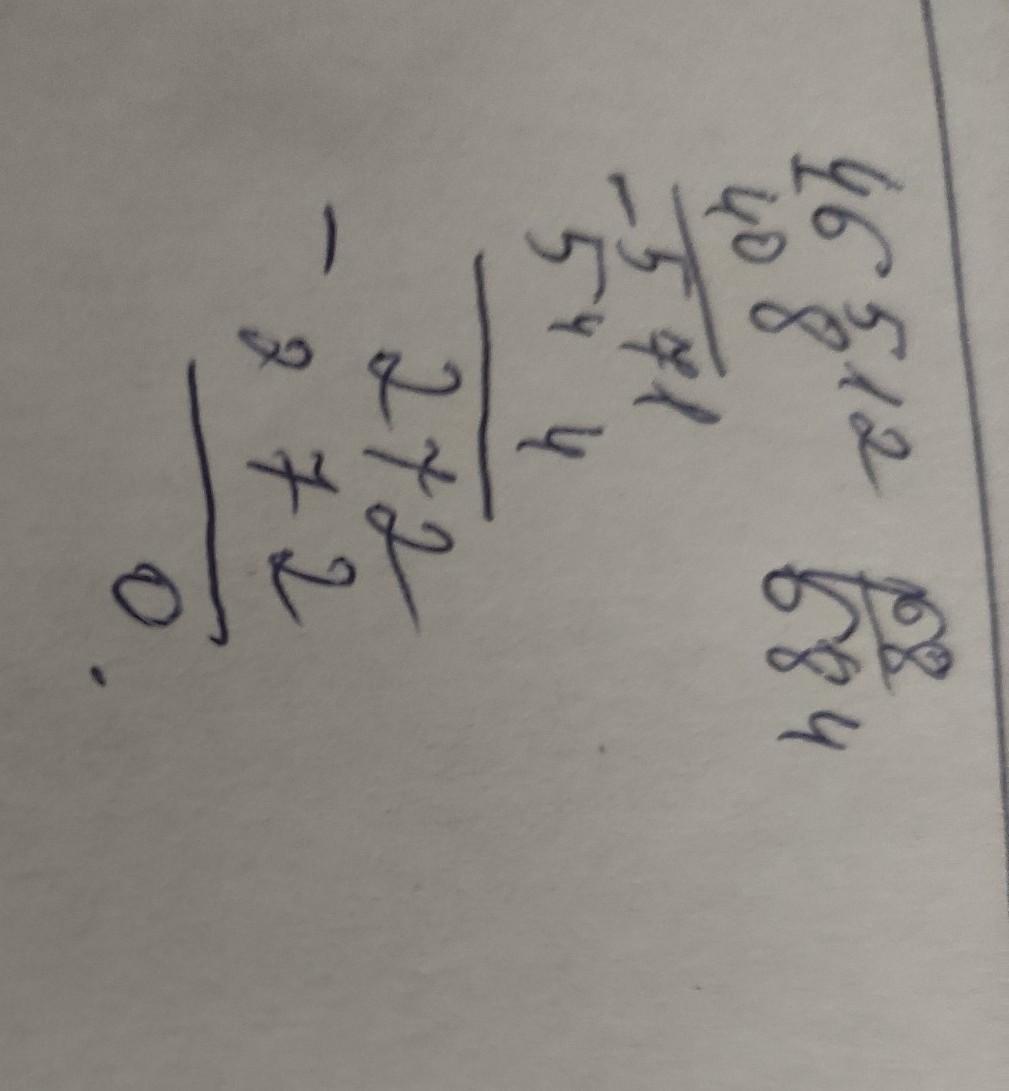 46512 68
408 684
- 571
544
272
- 272
0